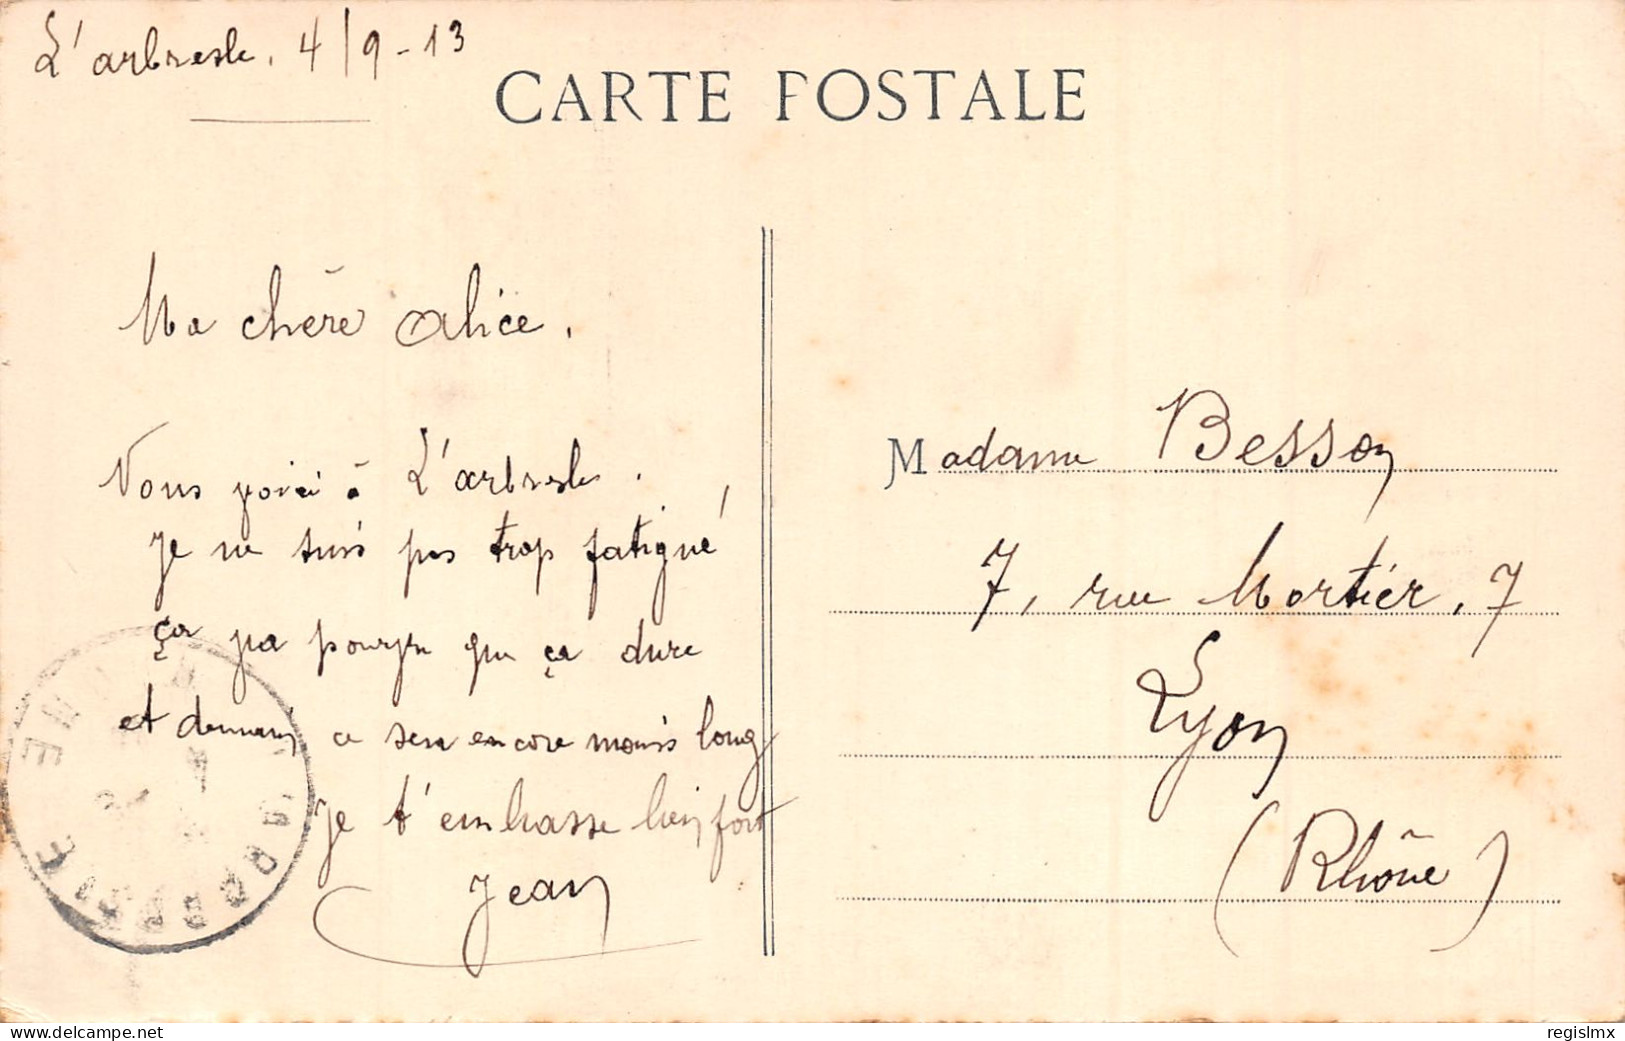 L'arbresle, 4/9-13
CARTE POSTALE
Ma chère Alice.
Nous voici à L'arbresle.
Je ne suis pas trop fatigué
ça va pourvu que ça dure
et demain ce sera encore moins long
je t'embrasse bien fort
Jean
Madame Besson
7, rue Mortier, 7
Lyon
(Rhône)
regislmx
www.delcampe.net